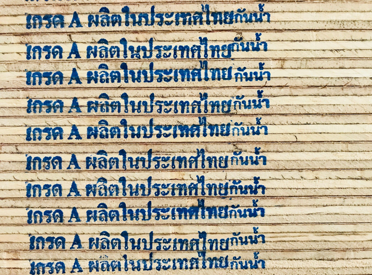 เกรด A ผลิตในประเทศไทยกันน้ำ
เกรด A ผลิตในประเทศไทยกันน้ำ
เกรด A ผลิตในประเทศไทยกันน้ำ
เกรด A ผลิตในประเทศไทยกันน้ำ
เกรด A ผลิตในประเทศไทยกันน้ำ
เกรด A ผลิตในประเทศไทยกันน้ำ
เกรด A ผลิตในประเทศไทยกันน้ำ
เกรด A ผลิตในประเทศไทยกันน้ำ
เกรด A ผลิตในประเทศไทยกันน้ำ
เกรด A ผลิตในประเทศไทยกันน้ำ